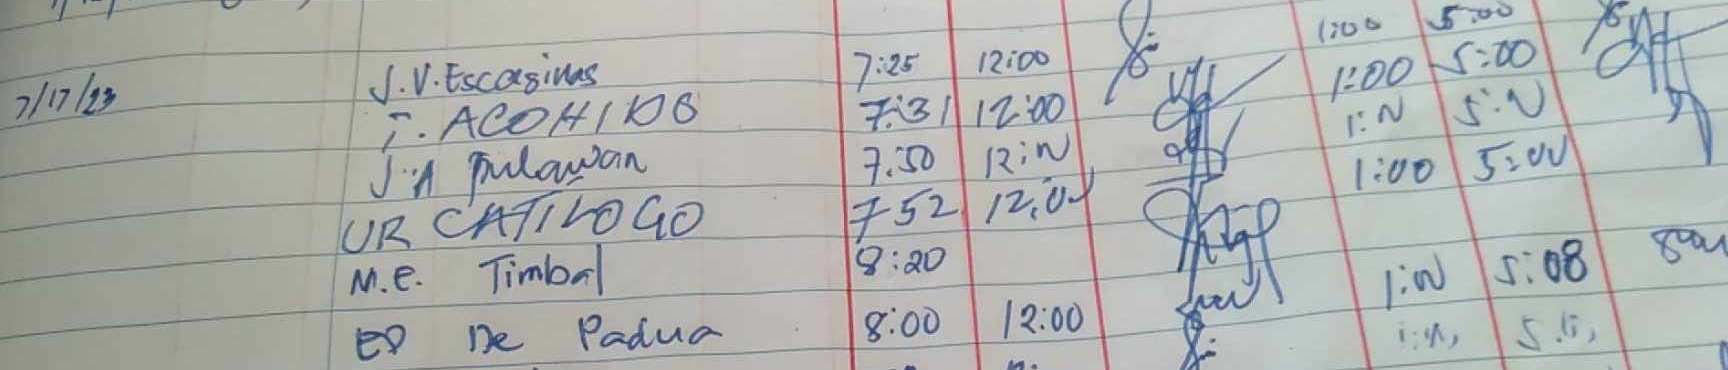 7/17/23 J.V. Escasinas 7:25 12:00 1:00 5:00
T. ACOHIDO 7:31 12:00 1:00 5:00
J.A Pulawan 7:50 12:00 1:00 5:00
UR CATILOGO 7 52 12:00 1:00 5:00
M.E. Timbal 8:20
ED De Padua 8:00 12:00 1:00 5:08